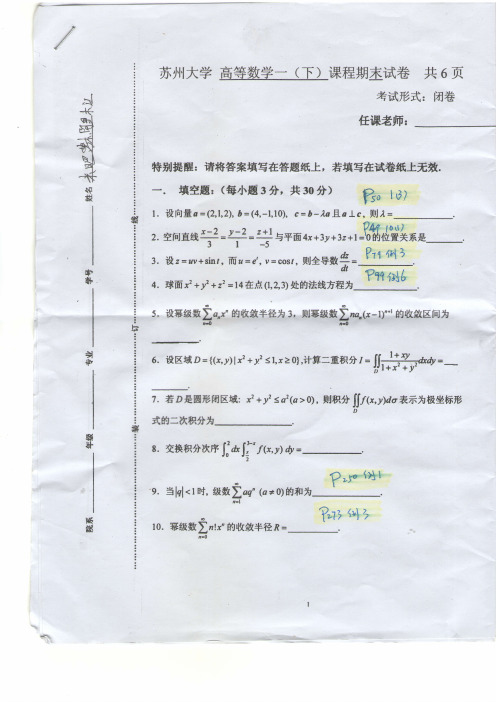 苏州大学 高等数学一（下）课程期末试卷 共6页
考试形式：闭卷
任课老师：
特别提醒：请将答案填写在答题纸上，若填写在试卷纸上无效.
一. 填空题：（每小题3分，共30分）
P50 1(3)
1. 设向量a=(2,1,2), b=(4,-1,10), c=b-λa且a⊥c，则λ=.
2. 空间直线(x-2)/3=(y-2)/1=(z+1)/-5与平面4x+3y+3z+1=0的位置关系是.
3. 设z=uv+sin t，而u=e^t，v=cos t，则全导数dz/dt=. P78 例3
4. 球面x²+y²+z²=14在点(1,2,3)处的法线方程为. P99 例6
5. 设幂级数∑_{n=0}^{∞} a_n x^n的收敛半径为3，则幂级数∑_{n=0}^{∞} na_n(x-1)^{n+1}的收敛区间为
.
6. 设区域D={(x,y)|x²+y²≤1,x≥0},计算二重积分I=∬_D (1+xy)/(1+x²+y²)dxdy=
.
7. 若D是圆形闭区域：x²+y²≤a²(a>0)，则积分∬_D f(x,y)dσ表示为极坐标形
式的二次积分为.
8. 交换积分次序∫_0^2 dx∫_{x/2}^{3-x} f(x,y) dy=.
P250 例1
9. 当|q|<1时，级数∑_{n=1}^{∞} aq^n (a≠0)的和为.
P273 例3
10. 幂级数∑_{n=0}^{∞} n!x^n的收敛半径R=.
1
姓名
学号
专业
年级
院系
线
订
装